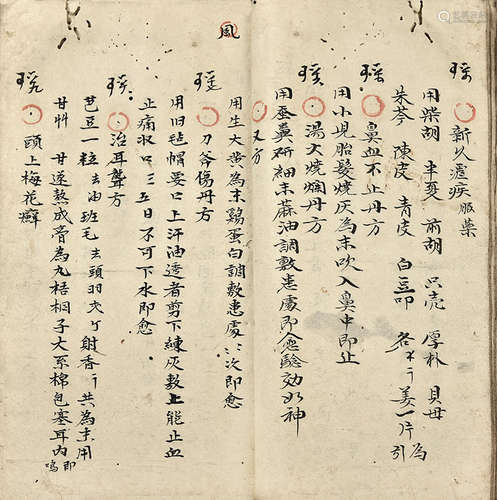 風
新久瘧疾服藥
用柴胡 半夏 前胡 只壳 厚朴 貝母
朱苓 陳皮 青皮 白豆叩 各不亍 姜一片為引
鼻血不止丹方
用小兒胎髮燒灰為末吹入鼻中即止
湯火燒爛丹方
用蚕糞研細末蔴油調敷患處即愈驗効如神
又方
用生大黄為末鷄蛋白調敷患處二次即愈
刀斧傷丹方
用旧毡帽要口上汗油透者剪下練灰敷上能止血
止痛收口三五日不可下水即愈
治耳聾方
芭豆一粒去油班毛去頭羽射香共為末用
甘艸 甘遂熬成膏為丸梧桐子大系棉包塞耳內即鳴
頭上梅花癬